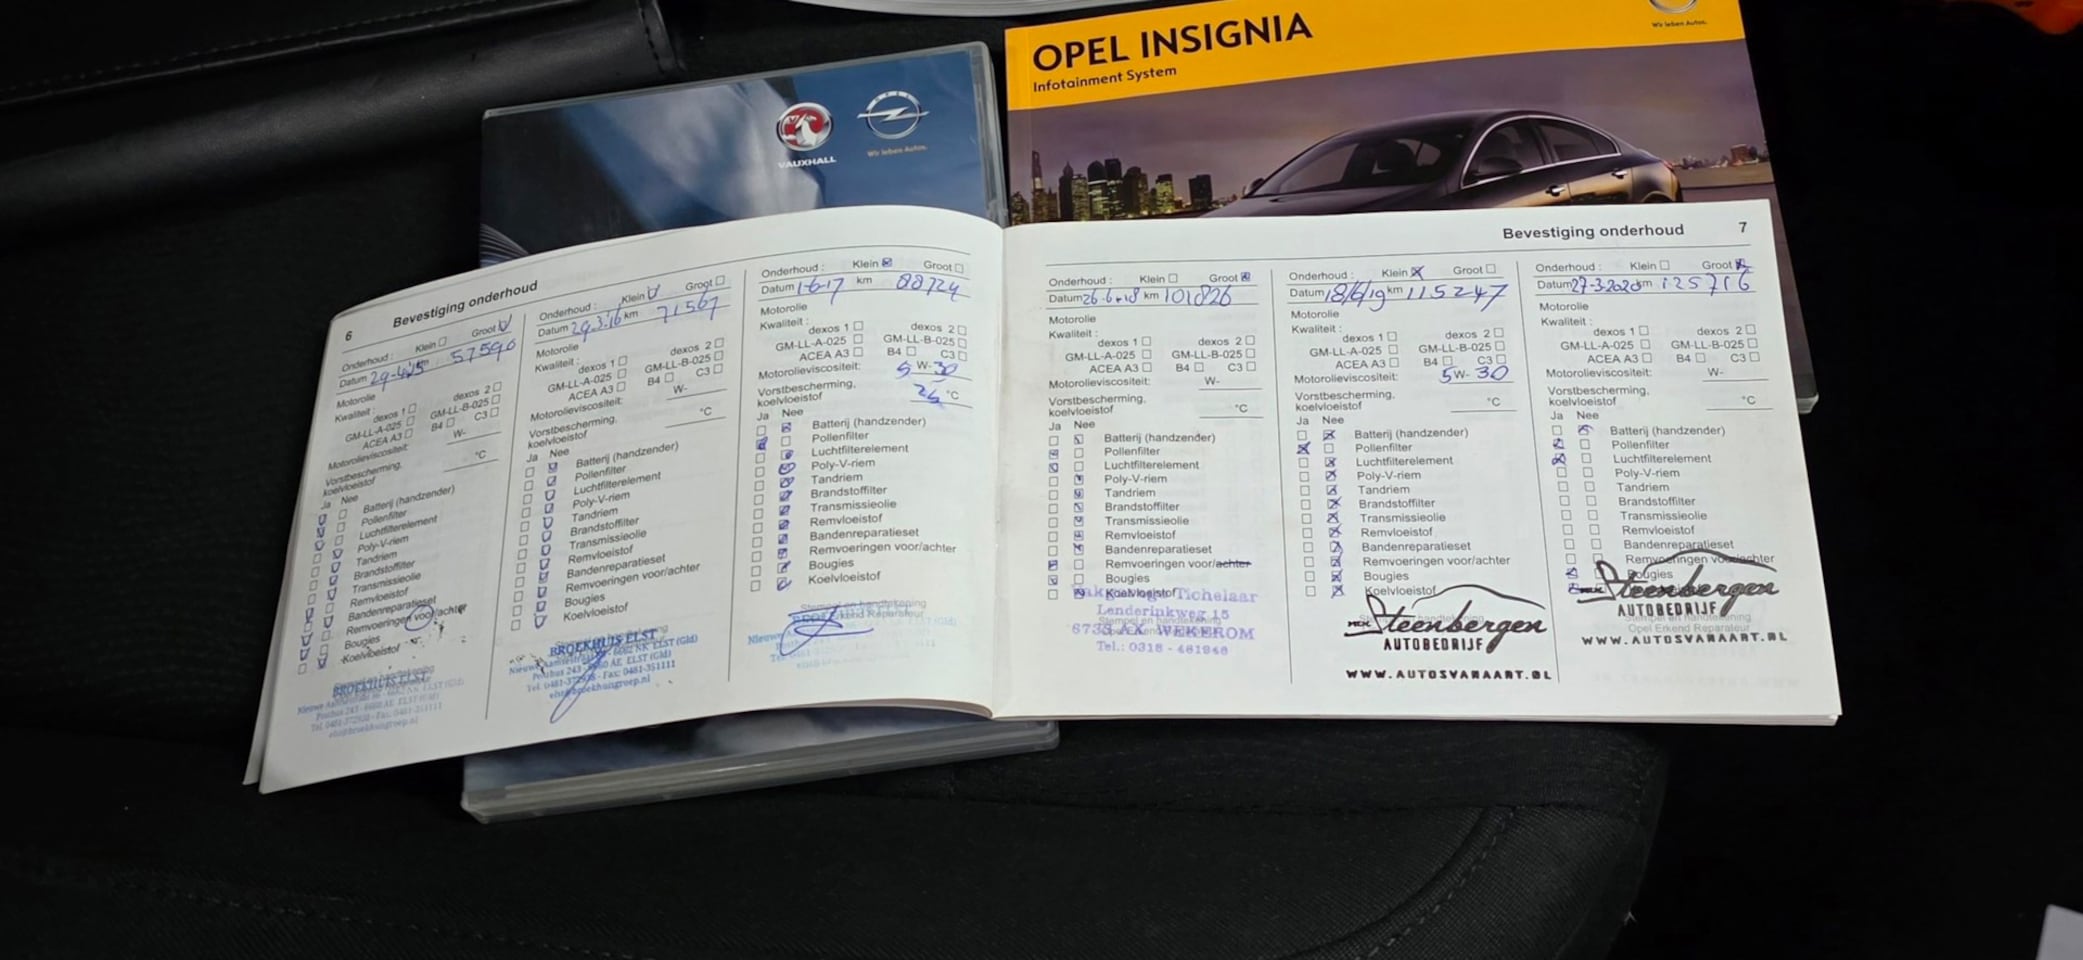 OPEL INSIGNIA
Infotainment System
Wir leben Autos.
VAUXHALL
OPEL
Wir leben Autos.
6 Bevestiging onderhoud
Onderhoud : Klein Groot
Datum 29-4-15 km 57590
Motorolie
Kwaliteit :
dexos 1 dexos 2
GM-LL-A-025 GM-LL-B-025
ACEA A3 B4 C3
Motorolieviscositeit: W-
Vorstbescherming,
koelvloeistof °C
Ja Nee
Batterij (handzender)
Pollenfilter
Luchtfilterelement
Poly-V-riem
Tandriem
Brandstoffilter
Transmissieolie
Remvloeistof
Bandenreparatieset
Remvoeringen voor/achter
Bougies
Koelvloeistof
Stempel en handtekening
BROEKHUIS ELST
Nieuwe Aamsestraat
Postbus 243 - 6660 AE ELST (Gld)
Tel. 0481-372928 - Fax: 0481-351111
elst@broekhuisgroep.nl
Onderhoud : Klein Groot
Datum 29.3.16 km 71567
Motorolie
Kwaliteit :
dexos 1 dexos 2
GM-LL-A-025 GM-LL-B-025
ACEA A3 B4 C3
Motorolieviscositeit: W-
Vorstbescherming,
koelvloeistof °C
Ja Nee
Batterij (handzender)
Pollenfilter
Luchtfilterelement
Poly-V-riem
Tandriem
Brandstoffilter
Transmissieolie
Remvloeistof
Bandenreparatieset
Remvoeringen voor/achter
Bougies
Koelvloeistof
BROEKHUIS ELST
Nieuwe Aamsestraat 6662 NK ELST (Gld)
Postbus 243 - 6660 AE ELST (Gld)
Tel. 0481-372928 - Fax: 0481-351111
elst@broekhuisgroep.nl
Onderhoud : Klein Groot
Datum 1-6-17 km 88724
Motorolie
Kwaliteit :
dexos 1 dexos 2
GM-LL-A-025 GM-LL-B-025
ACEA A3 B4 C3
Motorolieviscositeit: 5 W- 30
Vorstbescherming,
koelvloeistof 26 °C
Ja Nee
Batterij (handzender)
Pollenfilter
Luchtfilterelement
Poly-V-riem
Tandriem
Brandstoffilter
Transmissieolie
Remvloeistof
Bandenreparatieset
Remvoeringen voor/achter
Bougies
Koelvloeistof
Stempel en handtekening
Opel Erkend Reparateur
Bevestiging onderhoud 7
Onderhoud : Klein Groot
Datum 26-6-18 km 101826
Motorolie
Kwaliteit :
dexos 1 dexos 2
GM-LL-A-025 GM-LL-B-025
ACEA A3 B4 C3
Motorolieviscositeit: W-
Vorstbescherming,
koelvloeistof °C
Ja Nee
Batterij (handzender)
Pollenfilter
Luchtfilterelement
Poly-V-riem
Tandriem
Brandstoffilter
Transmissieolie
Remvloeistof
Bandenreparatieset
Remvoeringen voor/achter
Bougies
Koelvloeistof
Tichelaar
Lenderinkweg 15
Stempel en handtekening
6733 AX WEKEROM
Tel.: 0318 - 461946
Onderhoud : Klein Groot
Datum 18/6/19 km 115247
Motorolie
Kwaliteit :
dexos 1 dexos 2
GM-LL-A-025 GM-LL-B-025
ACEA A3 B4 C3
Motorolieviscositeit: 5 W- 30
Vorstbescherming,
koelvloeistof °C
Ja Nee
Batterij (handzender)
Pollenfilter
Luchtfilterelement
Poly-V-riem
Tandriem
Brandstoffilter
Transmissieolie
Remvloeistof
Bandenreparatieset
Remvoeringen voor/achter
Bougies
Koelvloeistof
Steenbergen
AUTOBEDRIJF
WWW.AUTOSVANAART.NL
Onderhoud : Klein Groot
Datum 27-3-2020 km 125716
Motorolie
Kwaliteit :
dexos 1 dexos 2
GM-LL-A-025 GM-LL-B-025
ACEA A3 B4 C3
Motorolieviscositeit: W-
Vorstbescherming,
koelvloeistof °C
Ja Nee
Batterij (handzender)
Pollenfilter
Luchtfilterelement
Poly-V-riem
Tandriem
Brandstoffilter
Transmissieolie
Remvloeistof
Bandenreparatieset
Remvoeringen voor/achter
Bougies
Steenbergen
AUTOBEDRIJF
Stempel en handtekening
Opel Erkend Reparateur
WWW.AUTOSVANAART.NL